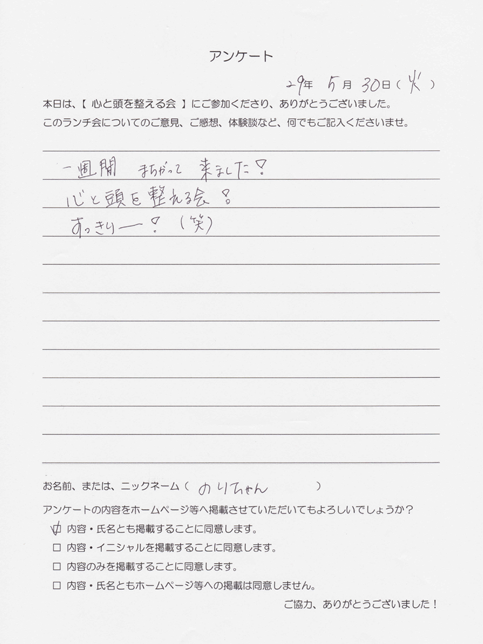 アンケート
29年 5月 30日(火)
本日は、【 心と頭を整える会 】にご参加くださり、ありがとうございました。
このランチ会についてのご意見、ご感想、体験談など、何でもご記入くださいませ。
一週間 まちがって 来ました!
心と頭を整える会!
すっきりー!(笑)
お名前、または、ニックネーム( のりちゃん )
アンケートの内容をホームページ等へ掲載させていただいてもよろしいでしょうか?
☑ 内容・氏名とも掲載することに同意します。
□ 内容・イニシャルを掲載することに同意します。
□ 内容のみを掲載することに同意します。
□ 内容・氏名ともホームページ等への掲載は同意しません。
ご協力、ありがとうございました!